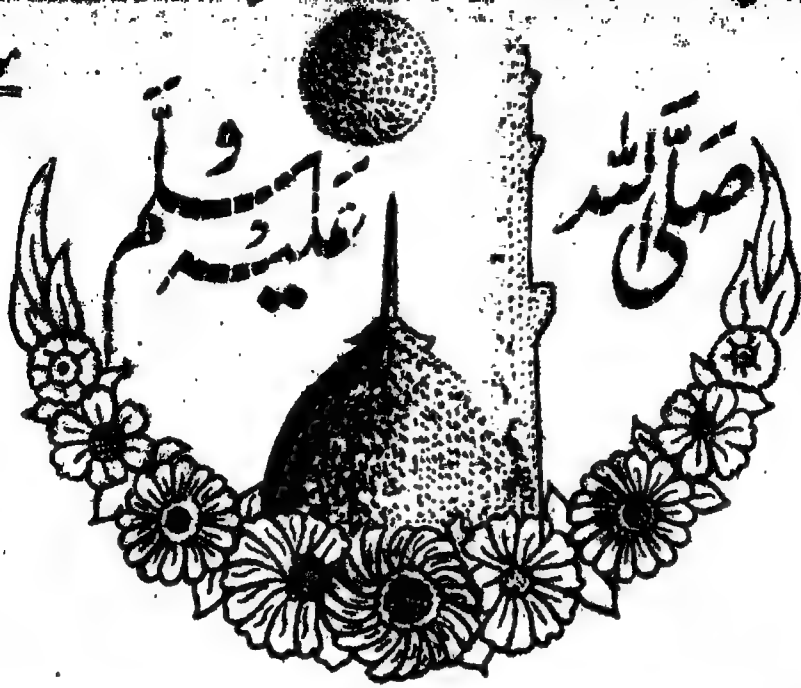 صَلَّى اللہ
عَلَیْہِ وَسَلَّم